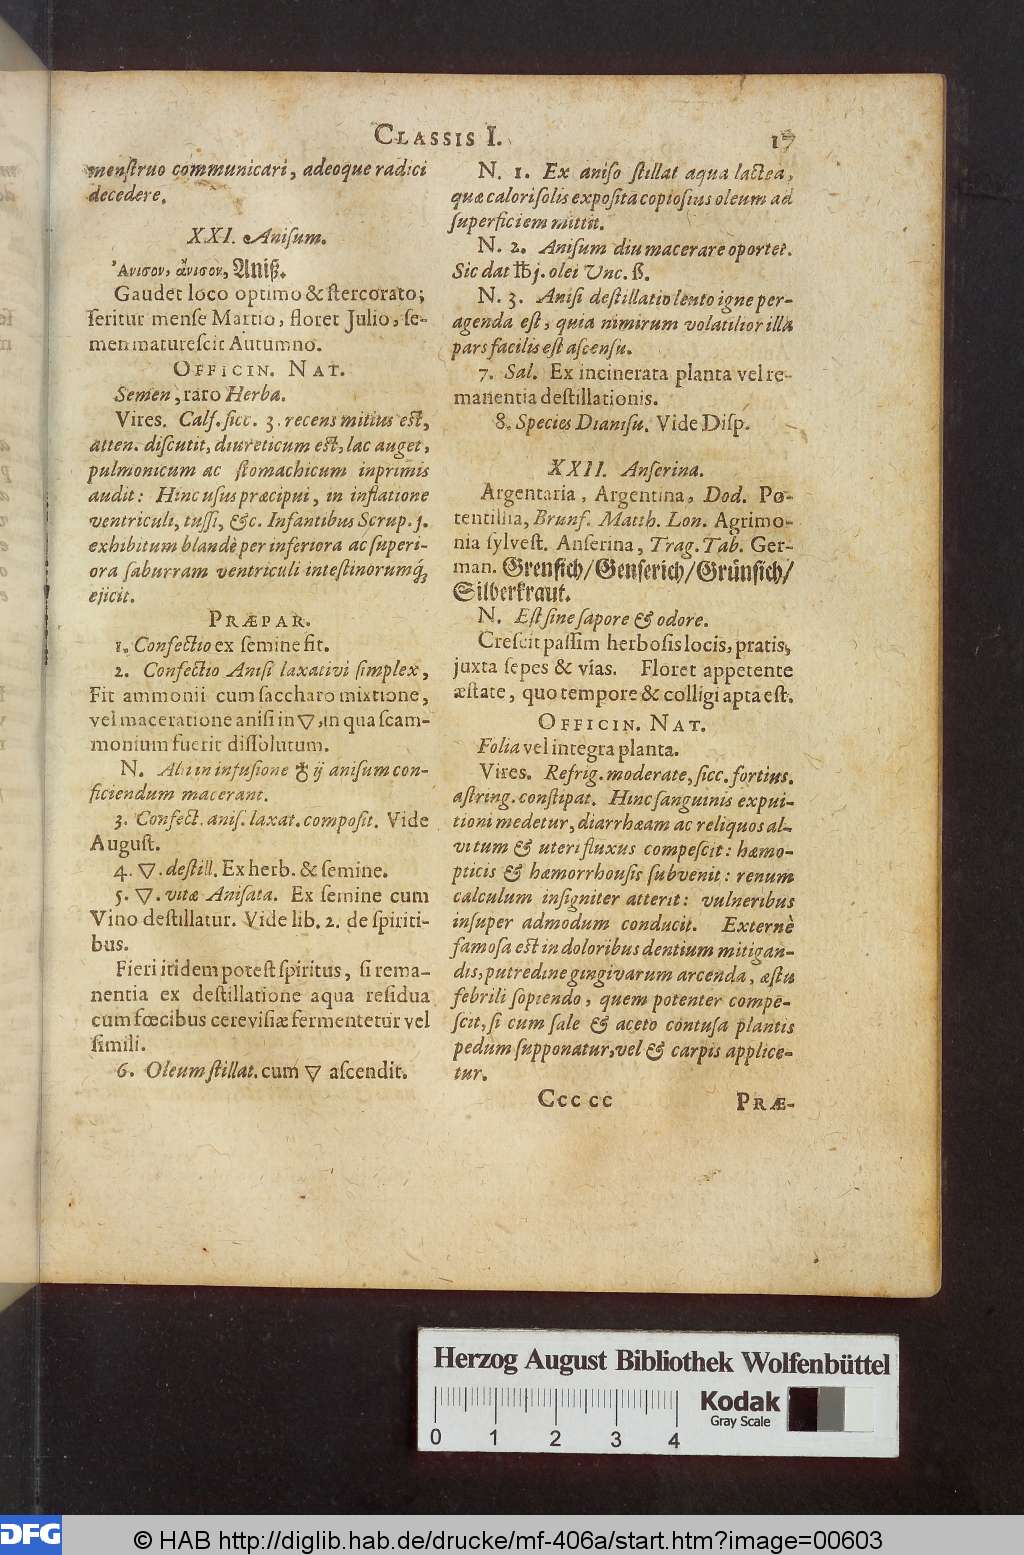 CLASSIS I.
17
menſtruo communicari, adeoque radici
decedere.
XXI. Aniſum.
Ἄνισον, ἄνισον, Aniß.
Gaudet loco optimo & ſtercorato;
ſeritur menſe Martio, floret Julio, ſe-
men matureſcit Autumno.
OFFICIN. NAT.
Semen, raro Herba.
Vires. Calf. ſicc. 3. recens mitius est,
atten. diſcutit, diureticum est, lac auget,
pulmonicum ac ſtomachicum inprimis
audit: Hinc uſus præcipui, in inflatione
ventriculi, tuſſi, &c. Infantibus Scrup. j.
exhibitum blandè per inferiora ac ſuperi-
ora ſaburram ventriculi inteſtinorumq́;
ejicit.
PRÆPAR.
1. Confectio ex ſemine fit.
2. Confectio Aniſi laxativi ſimplex,
Fit ammonii cum ſaccharo mixtione,
vel maceratione aniſi in 🜄, in qua ſcam-
monium fuerit diſſolutum.
N. Alii in infuſione ♁ ij aniſum con-
ficiendum macerant.
3. Confect. aniſ. laxat. compoſit. Vide
Auguſt.
4. 🜄. deſtill. Ex herb. & ſemine.
5. 🜄. vitæ Aniſata. Ex ſemine cum
Vino deſtillatur. Vide lib. 2. de ſpiriti-
bus.
Fieri itidem poteſt ſpiritus, ſi rema-
nentia ex deſtillatione aqua reſidua
cum fœcibus cereviſiæ fermentetur vel
ſimili.
6. Oleum ſtillat. cum 🜄 aſcendit.
N. 1. Ex aniſo ſtillat aqua lactea,
quæ calori ſolis expoſita copioſius oleum ad
ſuperficiem mittit.
N. 2. Aniſum diu macerare oportet.
Sic dat ℔ j. olei Unc. ß.
N. 3. Aniſi deſtillatio lento igne per-
agenda eſt, quia nimirum volatilior illa
pars facilis eſt aſcenſu.
7. Sal. Ex incinerata planta vel re-
manentia deſtillationis.
8. Species Dianiſu. Vide Diſp.
XXII. Anſerina.
Argentaria, Argentina, Dod. Po-
tentilla, Brunf. Matth. Lon. Agrimo-
nia ſylveſt. Anſerina, Trag. Tab. Ger-
man. Grenſich/Genſerich/Grünſich/
Silberkraut.
N. Eſt ſine ſapore & odore.
Creſcit paſſim herboſis locis, pratis,
juxta ſepes & vias. Floret appetente
æſtate, quo tempore & colligi apta eſt.
OFFICIN. NAT.
Folia vel integra planta.
Vires. Refrig. moderate, ſicc. fortius.
aſtring. conſtipat. Hinc ſanguinis expui-
tioni medetur, diarrhæam ac reliquos al-
vi tum & uteri fluxus compeſcit: hæmo-
pticis & hæmorrhouſis ſubvenit: renum
calculum inſigniter atterit: vulneribus
inſuper admodum conducit. Externè
famoſa est in doloribus dentium mitigan-
dis, putredine gingivarum arcenda, æſtu
febrili ſopiendo, quem potenter compe-
ſcit, ſi cum ſale & aceto contuſa plantis
pedum ſupponatur, vel & carpis applice-
tur.
Ccc cc
PRÆ-
Herzog August Bibliothek Wolfenbüttel
Kodak
Gray Scale
0 1 2 3 4
DFG
© HAB http://diglib.hab.de/drucke/mf-406a/start.htm?image=00603